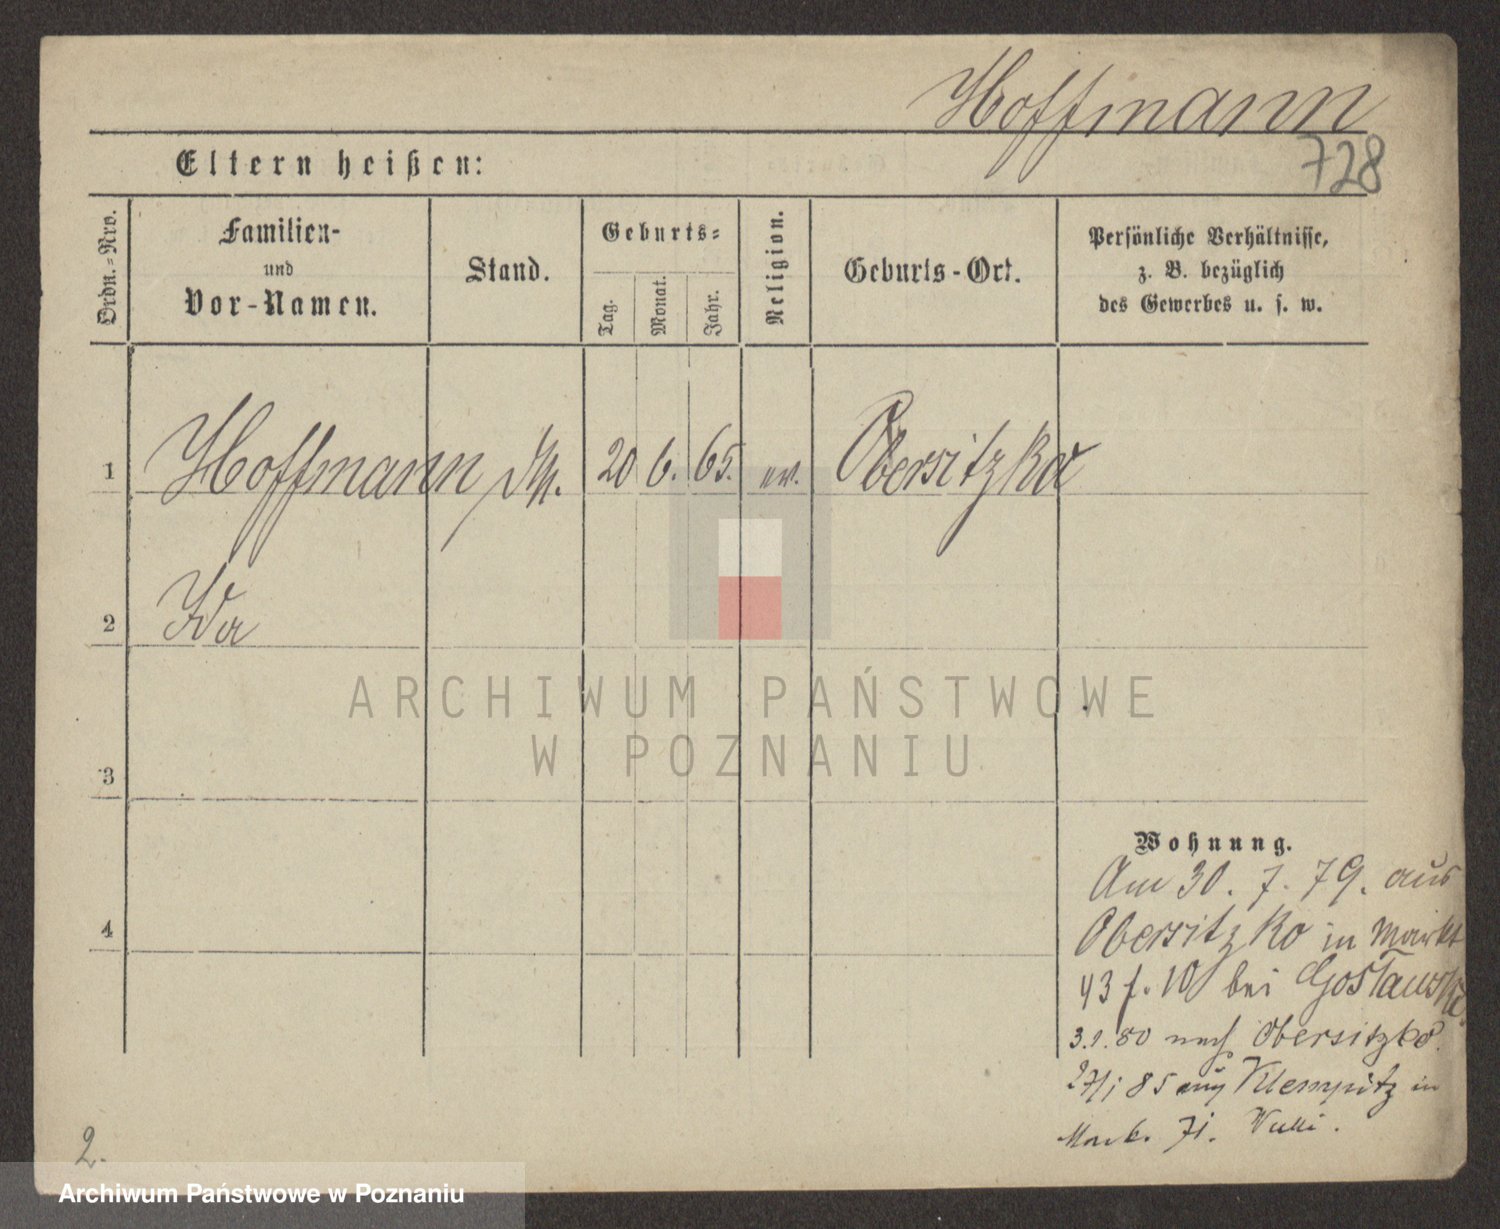 Hoffmann
728
Eltern heißen:
Ordn.-Nro.
Familien-
und
Vor-Namen.
Stand.
Geburts-
Tag.
Monat.
Jahr.
Religion.
Geburts-Ort.
Persönliche Verhältnisse,
z. B. bezüglich
des Gewerbes u. s. w.
1 Hoffmann 20 6. 65. ev. Obersitzko
2 Ida
3
4
ARCHIWUM PAŃSTWOWE
W POZNANIU
Wohnung.
Am 30. 7. 79. aus
Obersitzko in Markt
43 f. 10 bei
3.1.80 nach Obersitzko.
85 aus Klempitz in
Mark. 71.
2.
Archiwum Państwowe w Poznaniu